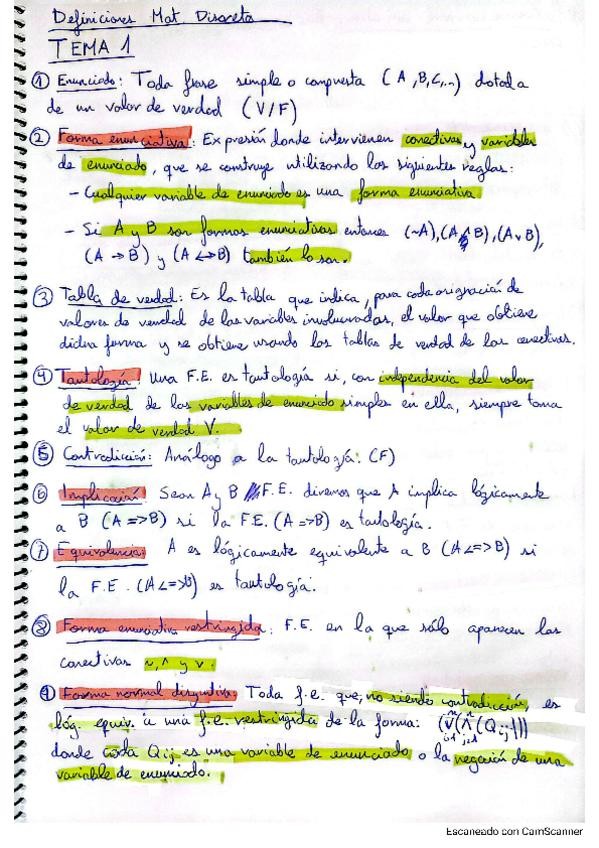 Definiciones Mat Discreta
TEMA 1
① Enunciado: Toda frase simple o compuesta (A,B,C,...) dotada
de un valor de verdad (V/F)
② Forma enunciativa: Expresión donde intervienen conectivas y variables
de enunciado, que se construye utilizando las siguientes reglas:
- Cualquier variable de enunciado es una forma enunciativa
- Si A y B son formas enunciativas entonces (~A),(A∧B),(A∨B),
(A → B) y (A <-> B) también lo son.
③ Tabla de verdad: Es la tabla que indica, para cada asignación de
valores de verdad de las variables involucradas, el valor que obtiene
dicha forma y se obtiene usando las tablas de verdad de las conectivas.
④ Tautología: Una F.E. es tautología si, con independencia del valor
de verdad de las variables de enunciado simples en ella, siempre toma
el valor de verdad V.
⑤ Contradicción: Análogo a la tautología. (F)
⑥ Implicación: Sean A y B F.E. diremos que A implica lógicamente
a B (A => B) si la F.E. (A => B) es tautología.
⑦ Equivalencia: A es lógicamente equivalente a B (A <=> B) si
la F.E. (A <=> B) es tautología.
⑧ Forma enunciativa restringida: F.E. en la que sólo aparecen las
conectivas ~, ∧ y ∨.
⑨ Forma normal disyuntiva: Toda f.e. que, no siendo contradicción, es
lóg. equiv. a una f.e. restringida de la forma: (∨ⁿᵢ₌₁(∧ⁿⱼ₌₁(Qij)))
donde cada Qij es una variable de enunciado o la negación de una
variable de enunciado.
Escaneado con CamScanner